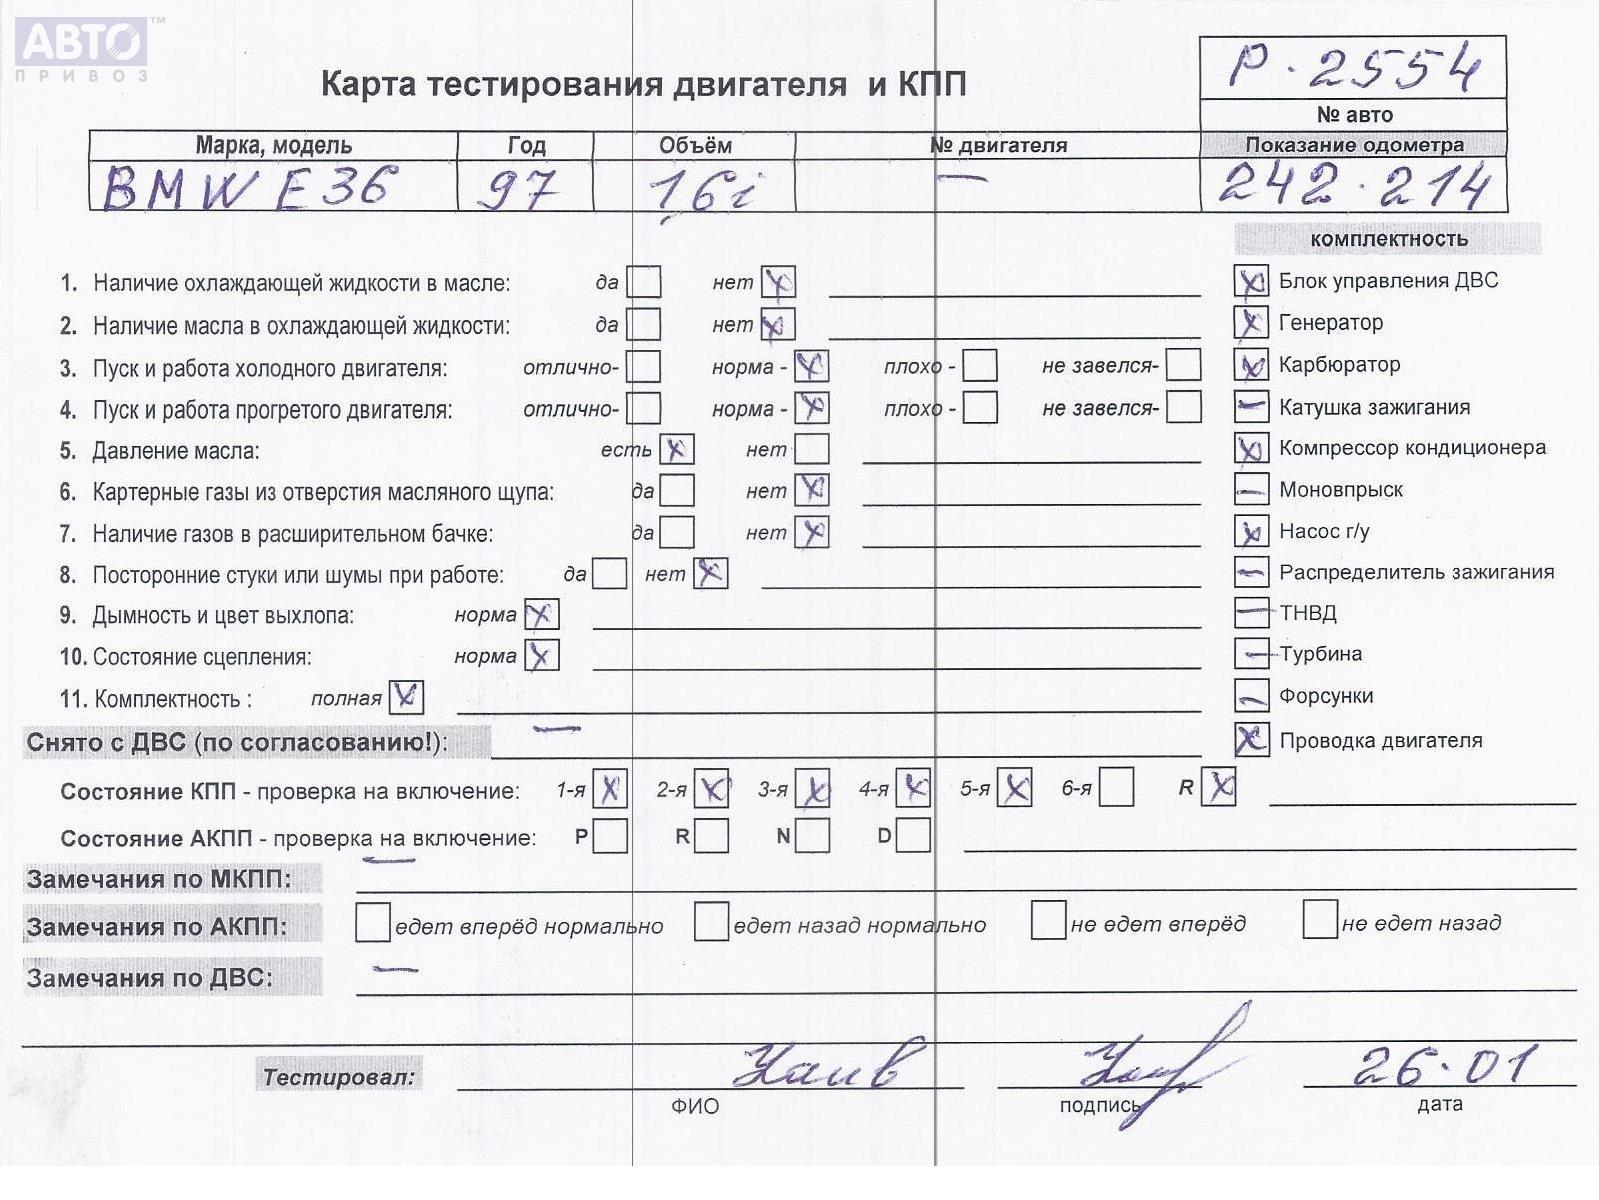 АВТО™
ПРИВОЗ
Карта тестирования двигателя и КПП
Р. 2554
№ авто
Марка, модель Год Объём № двигателя Показание одометра
BMW E36 97 1,6i — 242.214
комплектность
1. Наличие охлаждающей жидкости в масле: да нет X
X Блок управления ДВС
2. Наличие масла в охлаждающей жидкости: да нет X
X Генератор
3. Пуск и работа холодного двигателя: отлично- норма - X плохо - не завелся-
X Карбюратор
4. Пуск и работа прогретого двигателя: отлично- норма - X плохо - не завелся-
— Катушка зажигания
5. Давление масла: есть X нет
X Компрессор кондиционера
6. Картерные газы из отверстия масляного щупа: да нет X
— Моновпрыск
7. Наличие газов в расширительном бачке: да нет X
X Насос г/у
8. Посторонние стуки или шумы при работе: да нет X
— Распределитель зажигания
9. Дымность и цвет выхлопа: норма X
— ТНВД
10. Состояние сцепления: норма X
— Турбина
11. Комплектность : полная X
— Форсунки
Снято с ДВС (по согласованию!): —
X Проводка двигателя
Состояние КПП - проверка на включение: 1-я X 2-я X 3-я X 4-я X 5-я X 6-я R X
Состояние АКПП - проверка на включение: P R N D
Замечания по МКПП: —
Замечания по АКПП: едет вперёд нормально едет назад нормально не едет вперёд не едет назад
Замечания по ДВС: —
Тестировал: 26.01
ФИО подпись дата